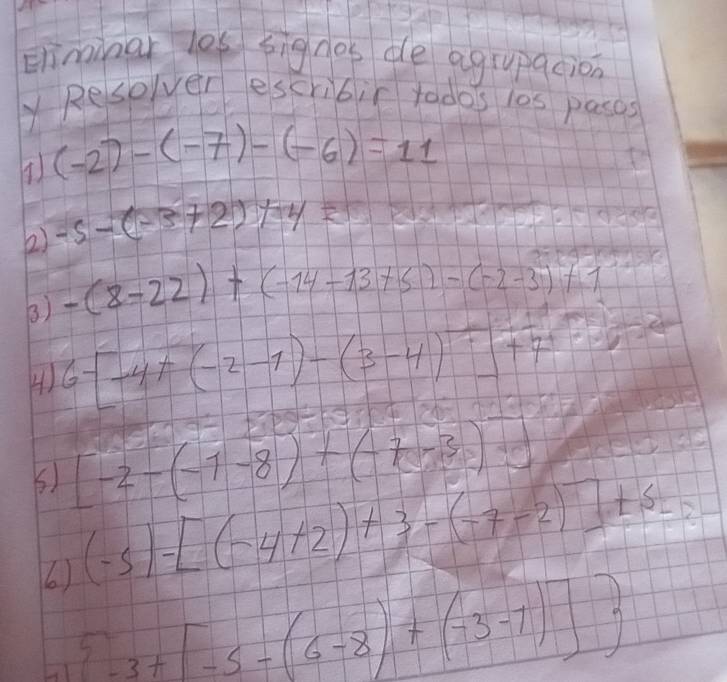 Eliminar los signos de agrupación
y Resolver escribir todos los pasos
1) (-2) - (-7) - (-6) = 11
2) -5 - (-3 + 2) + 4 =
3) -(8 - 22) + (-14 - 13 + 5) - (-2 - 3) + 1
4) 6 - [-4 + (-2 - 1) - (3 - 4)] + 7
5) [-2 - (-1 - 8) + (-7 - 3)]
6) (-5) - [(-4 + 2) + 3 - (-7 - 2)] + 5
{-3 + [-5 - (6 - 8) + (-3 - 1)]}